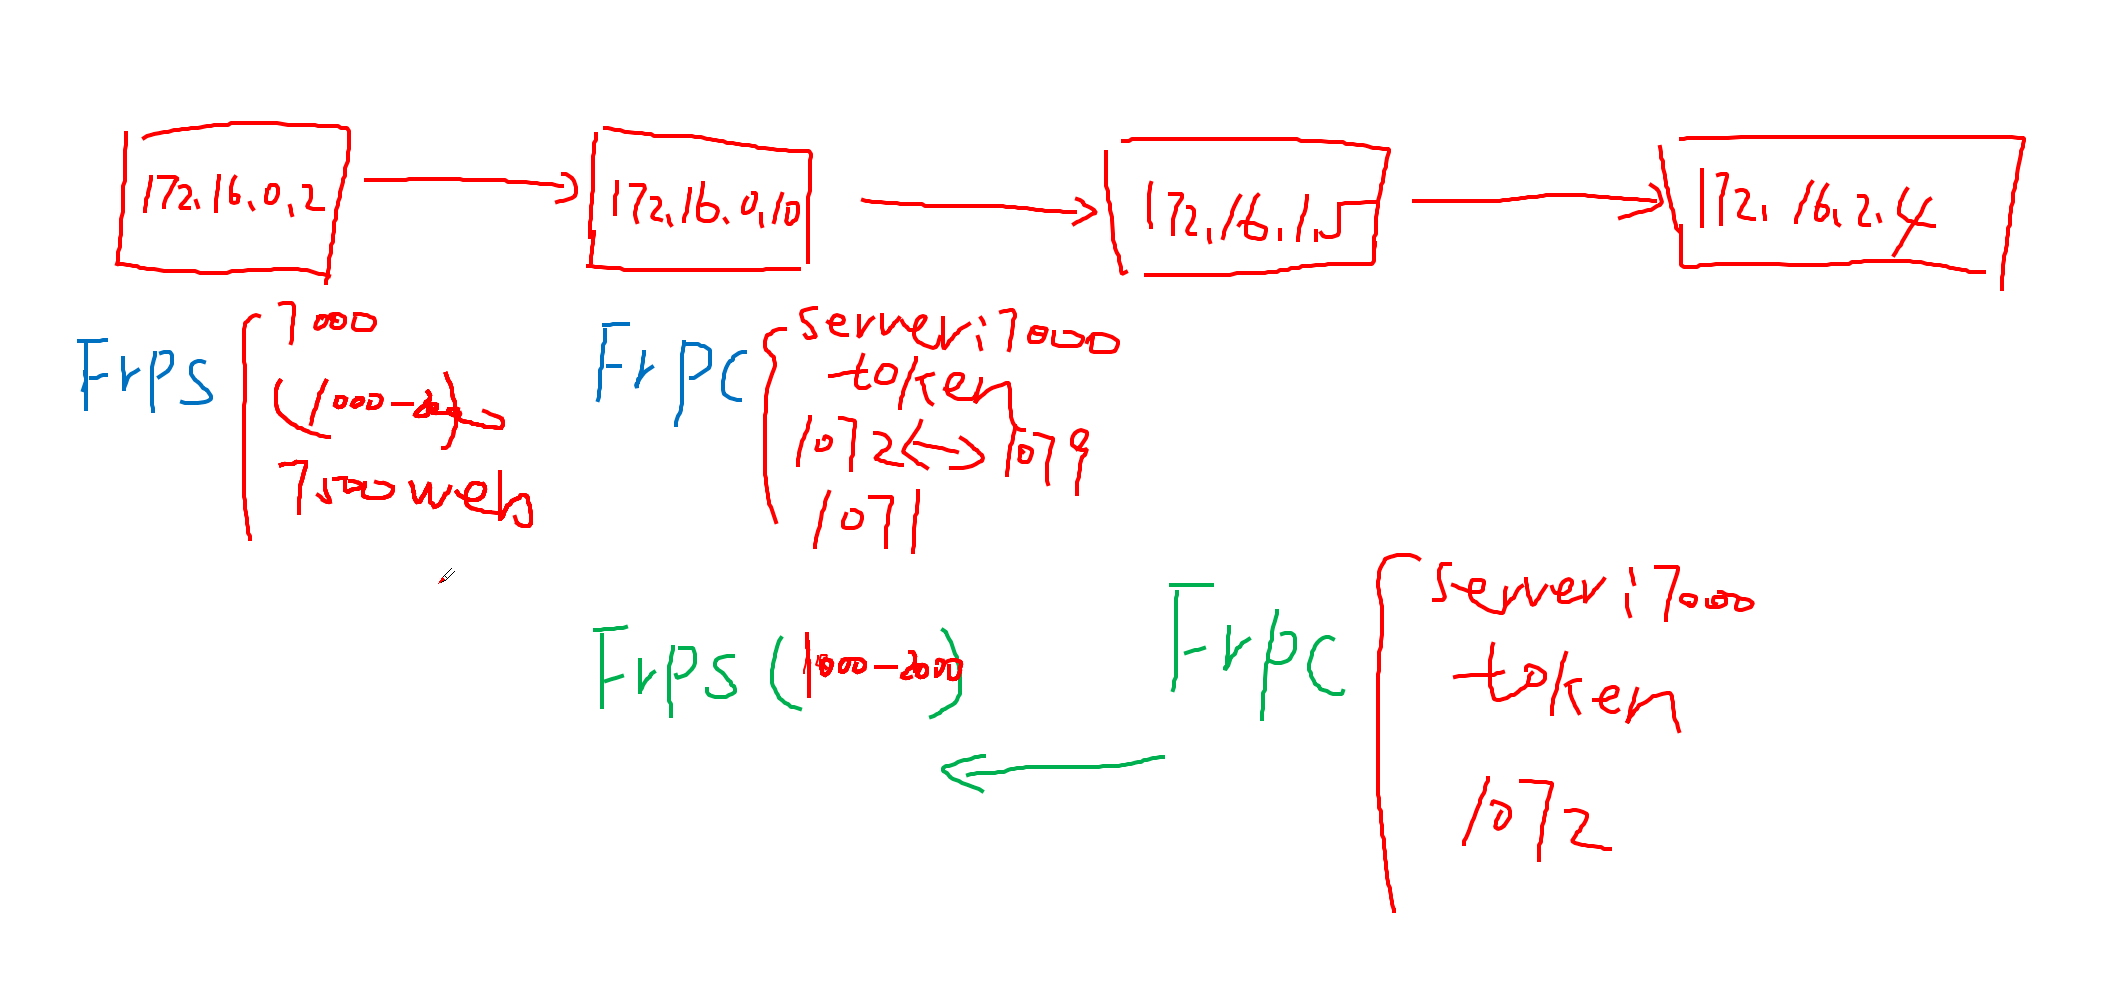 172.16.0.2
172.16.0.10
172.16.1.5
172.16.2.4
Frps
7000
(1000-2000)
7500 web
Frpc
server:7000
token
1072<->1079
1071
Frps (1000-2000)
Frpc
server:7000
token
1072